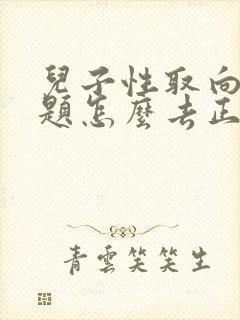 兒子性取向
題怎麼去正
青雲笑笑生